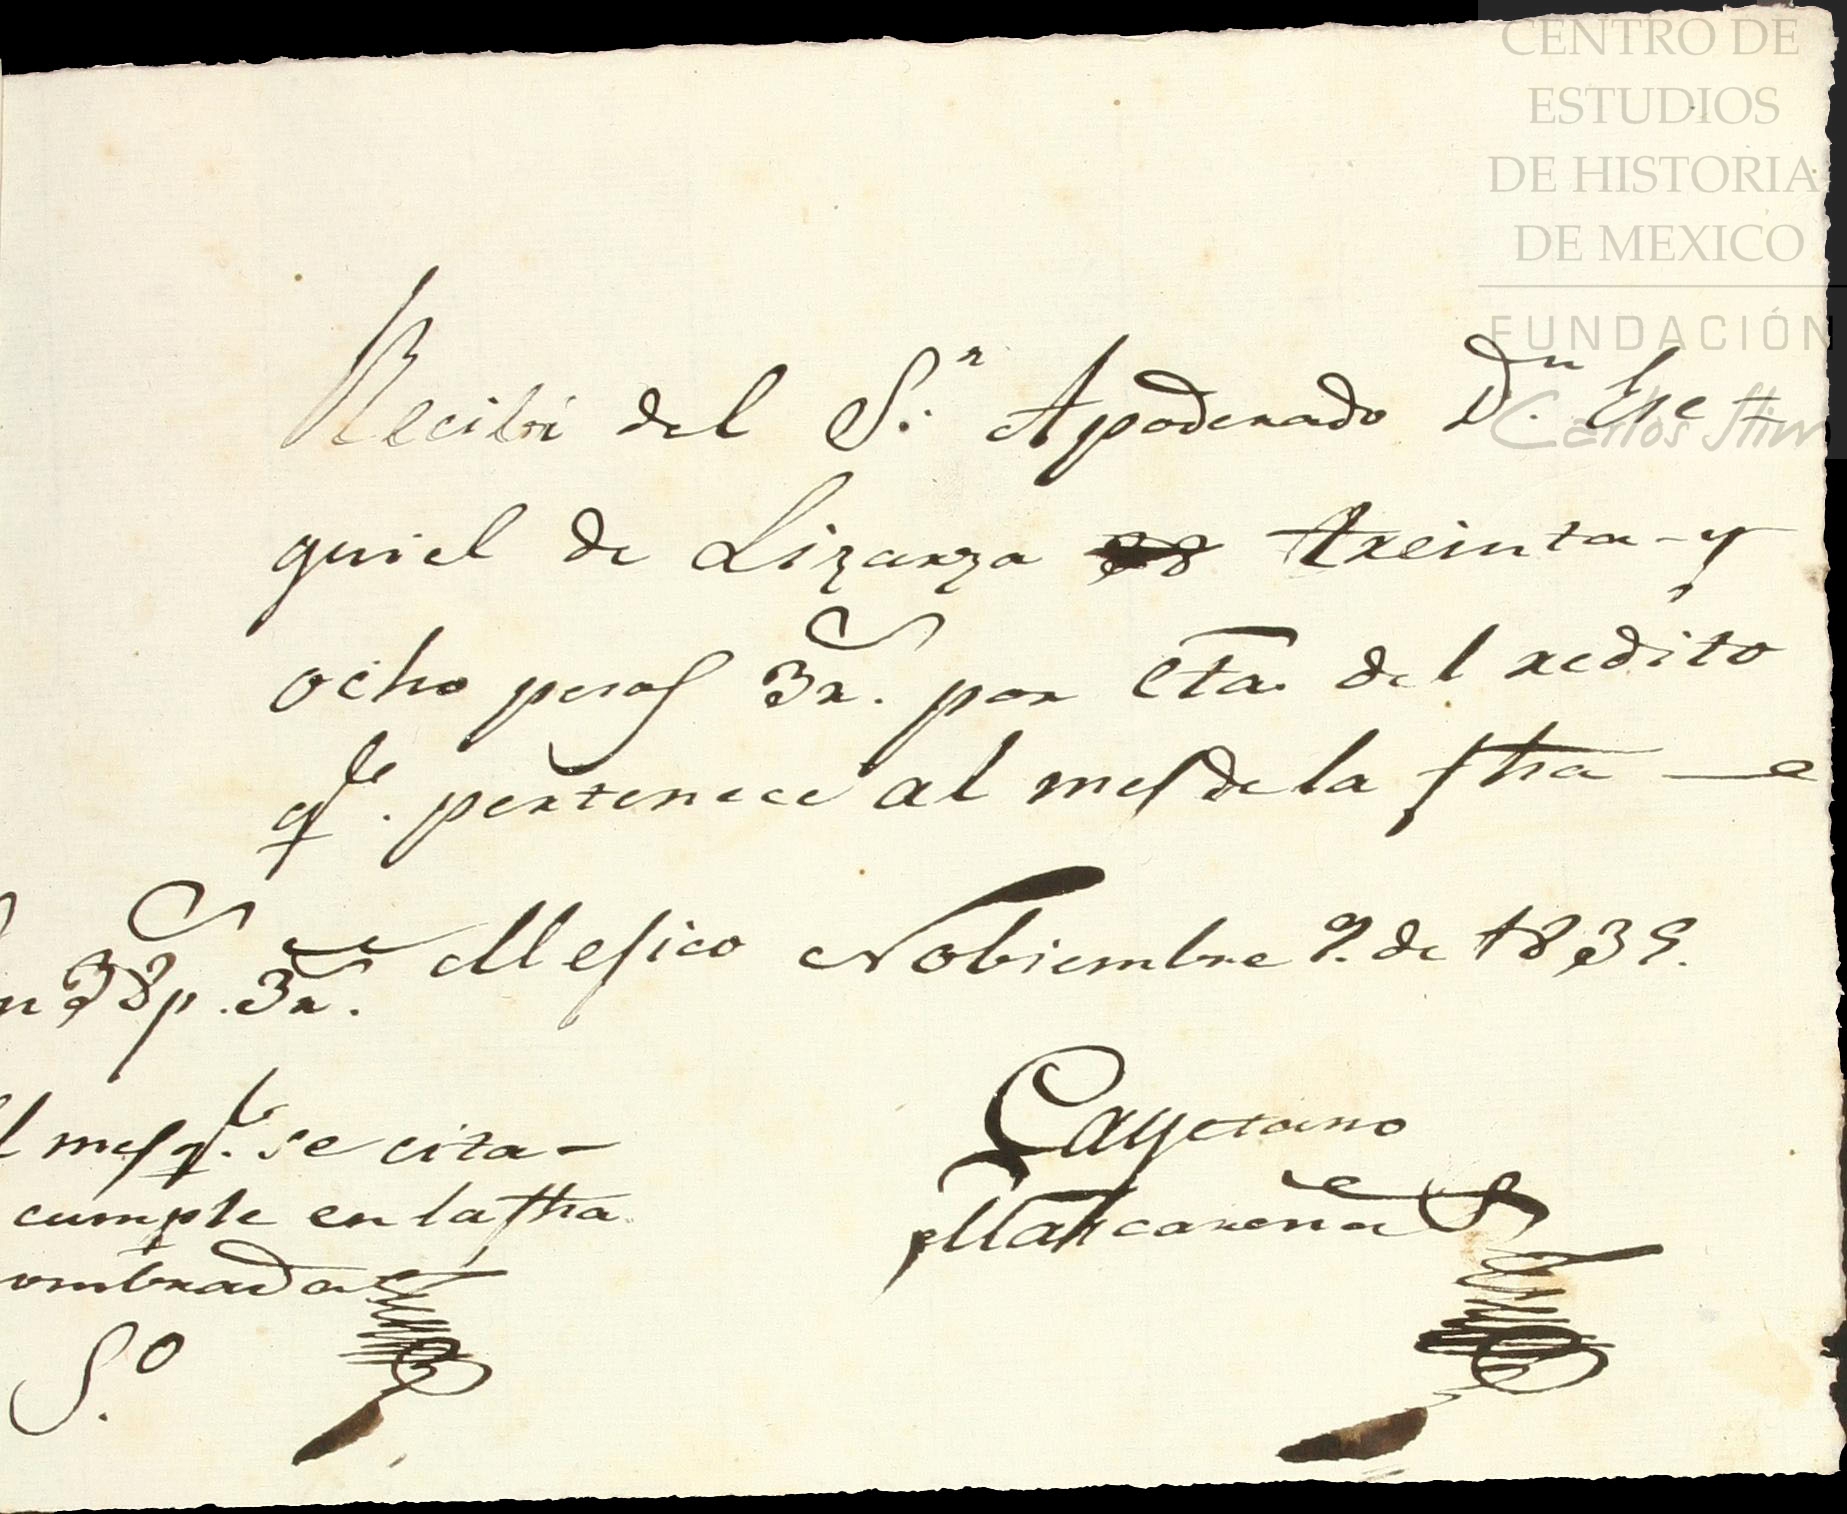 CENTRO DE
ESTUDIOS
DE HISTORIA
DE MEXICO
FUNDACIÓN
Carlos Slim
Recibi del S.r Apoderado Dn. Ese
quiel de Lizarza treinta y
ocho pesos 3r. por Cta. del redito
qe. pertenece al mes de la fha
Mesico Nobiembre 9. de 1839.
n 38p. 3r.
Cayetano
Mascarena
l mes qe. se cita
cumple en la fha.
ombrada
S.o